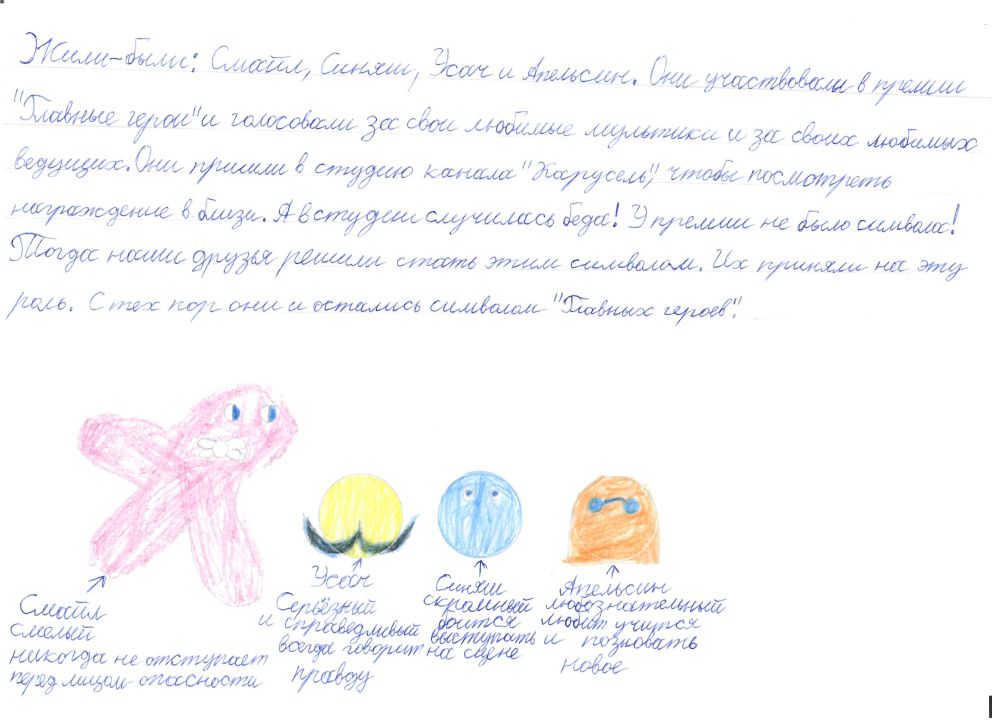 Жили-были: Смайл, Синяш, Усач и Апельсин. Они участвовали в премии
"Главные герои" и голосовали за свои любимые мультики и за своих любимых
ведущих. Они пришли в студию канала "Карусель", чтобы посмотреть
награждение в близи. А в студии случилась беда! У премии не было символа!
Тогда наши друзья решили стать этим символом. Их приняли на эту
роль. С тех пор они и остались символом "Главных героев".
Смайл
смелый
никогда не отступает
перед лицом опасности
Усач
Серьёзный
и справедливый
всегда говорит
правду
Синяш
скромный
боится
выступать
на сцене
Апельсин
любознательный
любит учится
и познавать
новое